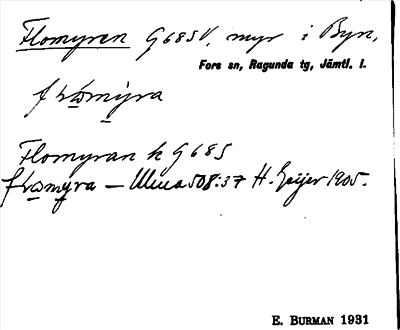 Flomyren G685V, myr i Byn,
Fors sn, Ragunda tg, Jämtl. l.
Flomyran k G685
508:37 H. Geijer 1905.
E. BURMAN 1931